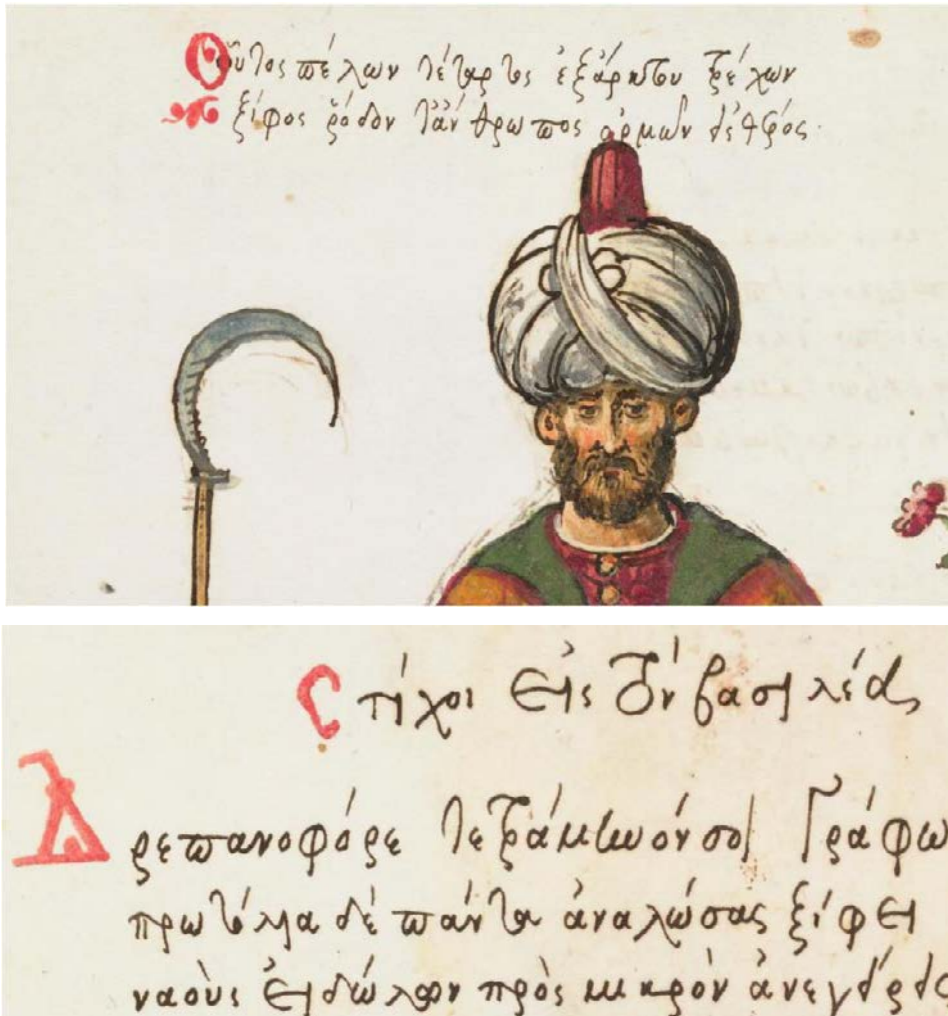 Οὗτος πέλων τέταρτος ἐξ ἄρκτου τρέχων
ξίφος ῥόδον τ' ἄνθρωπος
Στίχοι εἰς τὸν βασιλέα
Δρεπανοφόρε τετράμηνόν σοι γράφω
πρωτόλια δὲ πάντα ἀναλώσας ξίφει
ναοὺς εἰδώλων πρὸς μικρὸν